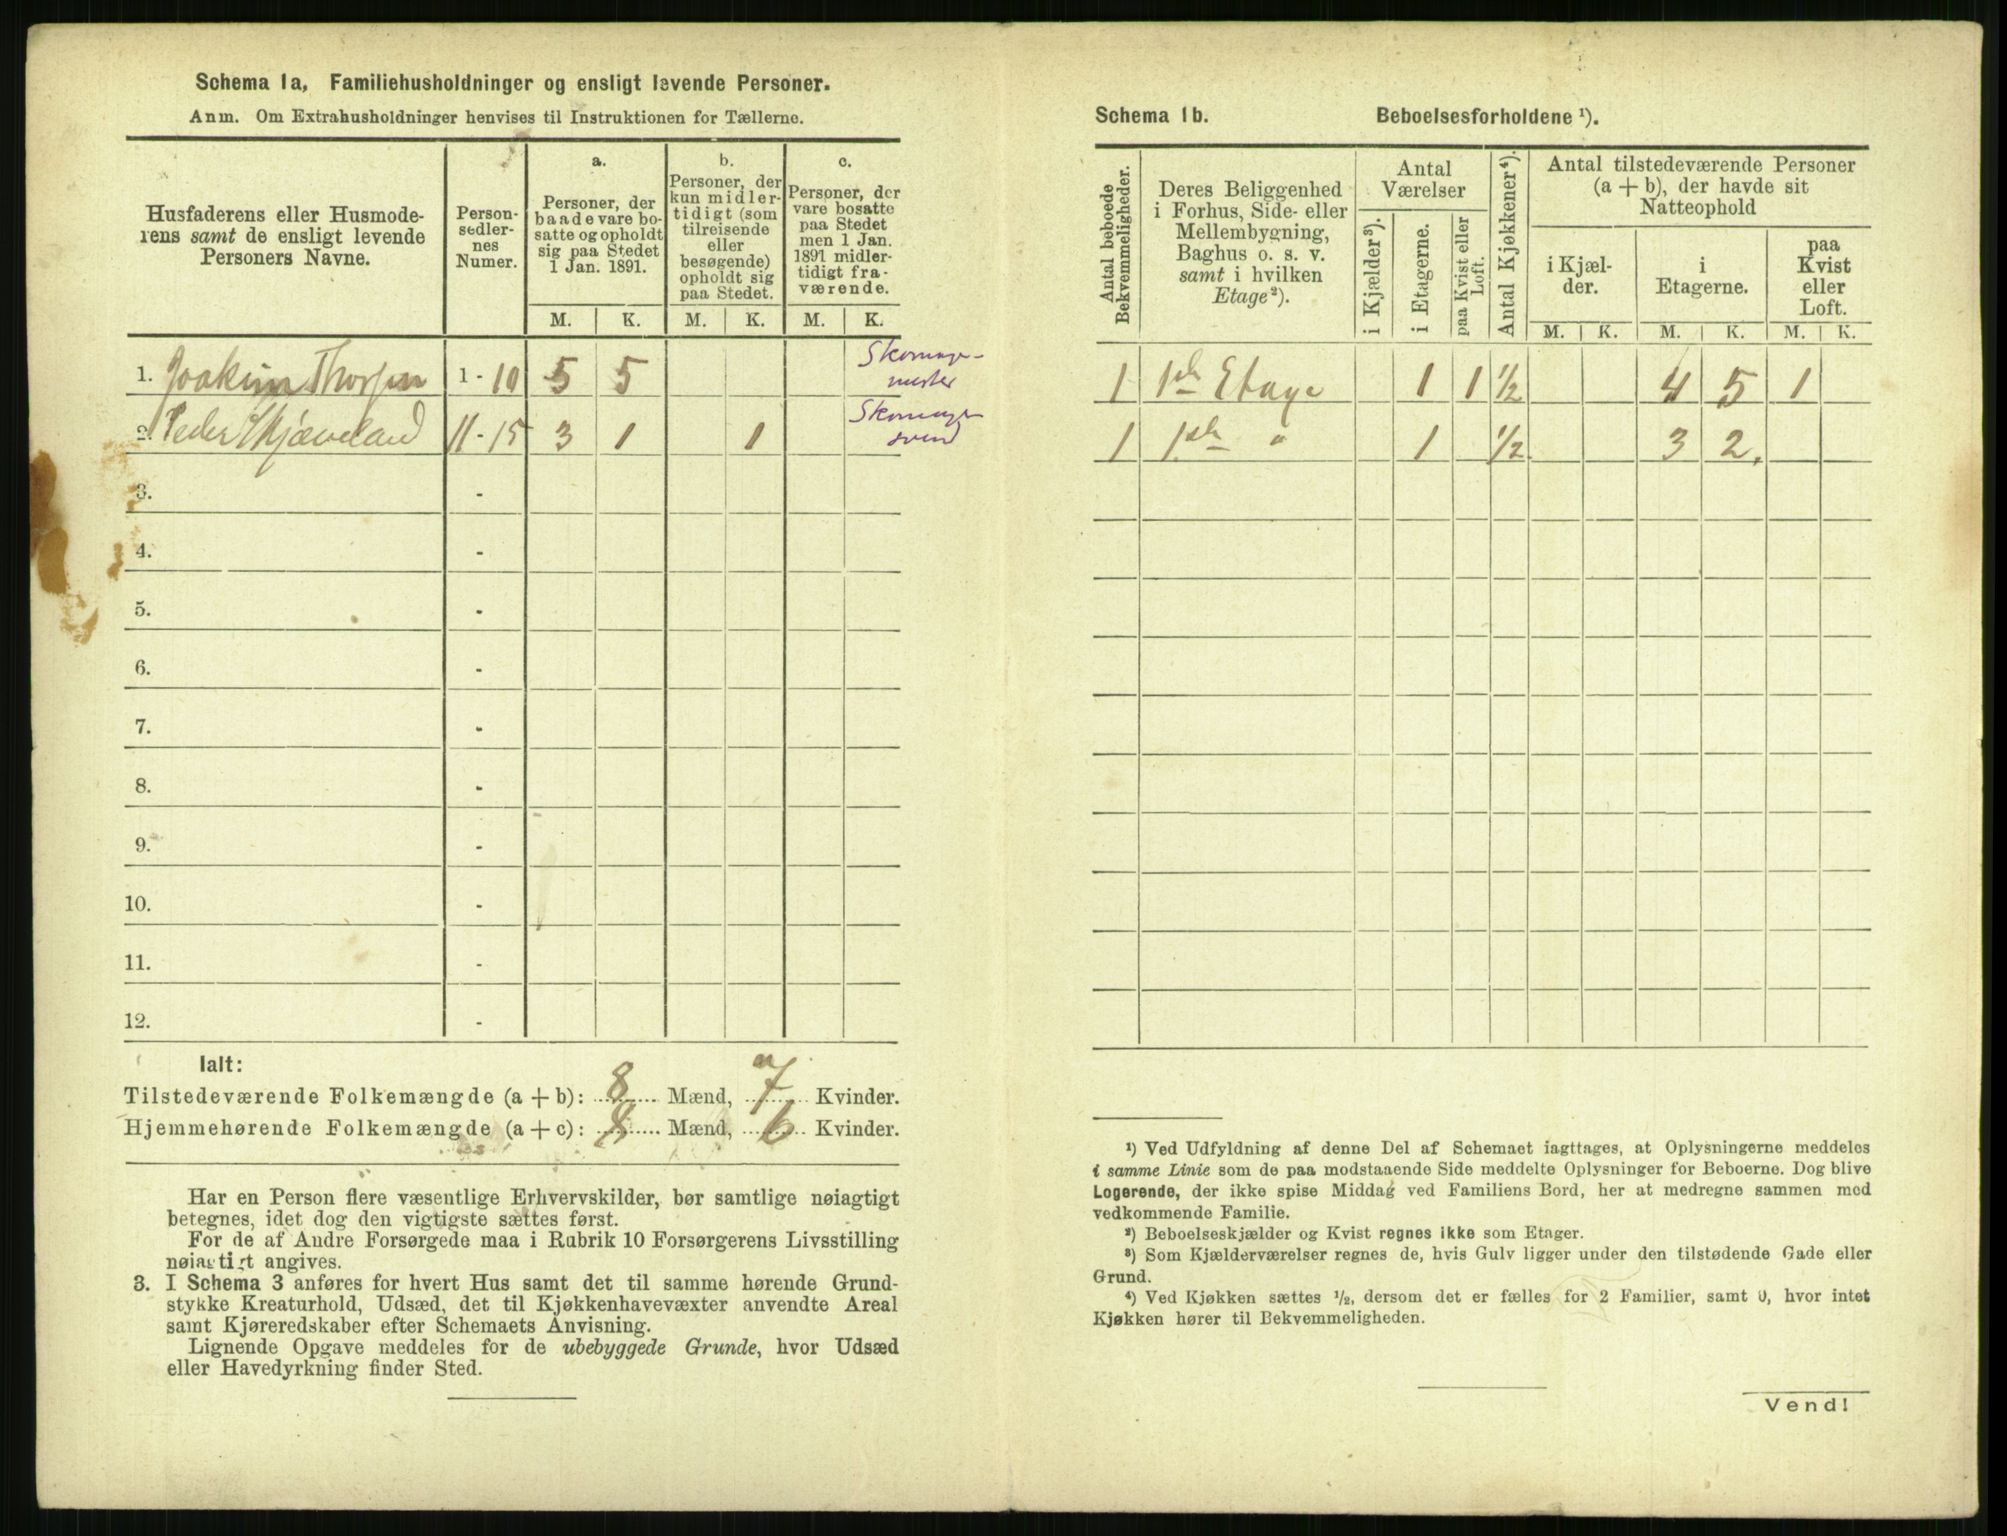 Schema 1a, Familiehusholdninger og ensligt levende Personer.
Anm. Om Extrahusholdninger henvises til Instruktionen for Tællerne.
Husfaderens eller Husmode-
rens samt de ensligt levende
Personers Navne.
Person-
sedler-
nes
Numer.
a.
Personer, der
baade vare bo-
satte og opholdt
sig paa Stedet
1 Jan. 1891.
b.
Personer, der
kun midler-
tidigt (som
tilreisende
eller
besøgende)
opholdt sig
paa Stedet.
c.
Personer, der
vare bosatte
paa Stedet
men 1 Jan.
1891 midler-
tidigt fra-
værende.
M. K. M. K. M. K.
1. Joakim Thorsen 1 - 10 5 5 Skomager-
mester
2. Peder Skjæveland 11 - 15 3 1 1 Skomager
svend
3. -
4. -
5. -
6. -
7. -
8. -
9. -
10. -
11. -
12. -
Ialt:
Tilstedeværende Folkemængde (a + b): 8 Mænd, 7 Kvinder.
Hjemmehørende Folkemængde (a + c): 8 Mænd, 6 Kvinder.
Har en Person flere væsentlige Erhvervskilder, bør samtlige nøiagtigt
betegnes, idet dog den vigtigste sættes først.
For de af Andre Forsørgede maa i Rubrik 10 Forsørgerens Livsstilling
nøiagtigt angives.
3. I Schema 3 anføres for hvert Hus samt det til samme hørende Grund-
stykke Kreaturhold, Udsæd, det til Kjøkkenhavevæxter anvendte Areal
samt Kjøreredskaber efter Schemaets Anvisning.
Lignende Opgave meddeles for de ubebyggede Grunde, hvor Udsæd
eller Havedyrkning finder Sted.
Schema 1b. Beboelsesforholdene ¹).
Antal beboede
Bekvemmeligheder.
Deres Beliggenhed
i Forhus, Side- eller
Mellembygning,
Baghus o. s. v.
samt i hvilken
Etage²).
Antal
Værelser
i Kjælder³).
i Etagerne.
paa Kvist eller
Loft.
Antal Kjøkkener⁴).
Antal tilstedeværende Personer
(a + b), der havde sit
Natteophold
i Kjæl-
der.
i
Etagerne.
paa
Kvist
eller
Loft.
M. K. M. K. M. K.
1 1ste Etage 1 1 ½ 4 5 1
1 1ste " 1 ½ 3 2.
¹) Ved Udfyldning af denne Del af Schemaet iagttages, at Oplysningerne meddeles
i samme Linie som de paa modstaaende Side meddelte Oplysninger for Beboerne. Dog blive
Logerende, der ikke spise Middag ved Familiens Bord, her at medregne sammen med
vedkommende Familie.
²) Beboelseskjælder og Kvist regnes ikke som Etager.
³) Som Kjælderværelser regnes de, hvis Gulv ligger under den tilstødende Gade eller
Grund.
⁴) Ved Kjøkken sættes ½, dersom det er fælles for 2 Familier, samt 0, hvor intet
Kjøkken hører til Bekvemmeligheden.
Vend!